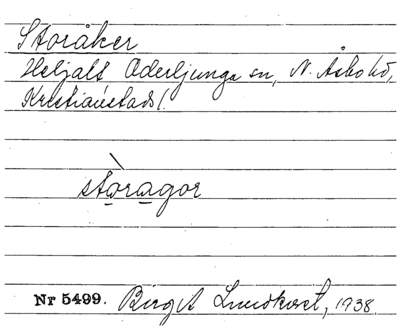 Storåker
Heljalt Oderljunga sn, N. Åsbo hd,
Kristianstads l.
stòragor
Nr 5499. Birgit Lundkvist, 1938